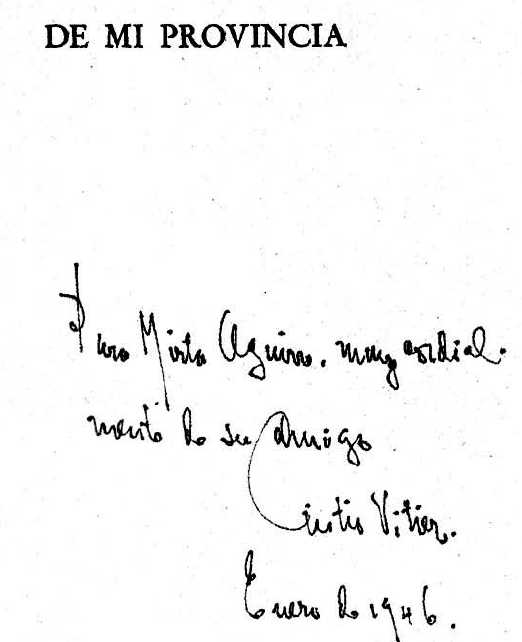 DE MI PROVINCIA
Para Mirta Aguirre, muy cordial-
mente de su amigo
Cintio Vitier.
Enero de 1946.